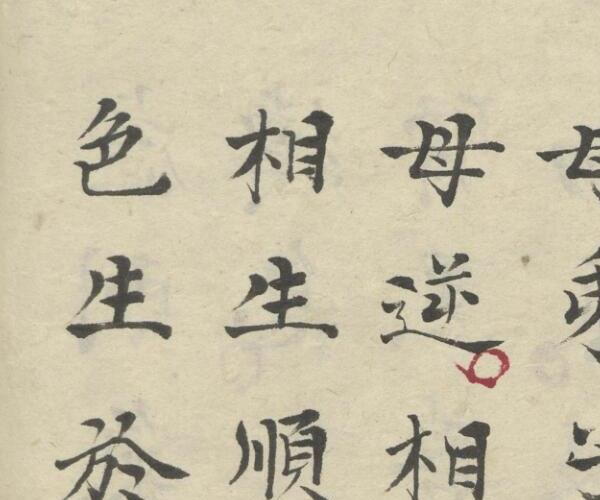 母逆相
相生順
色生於